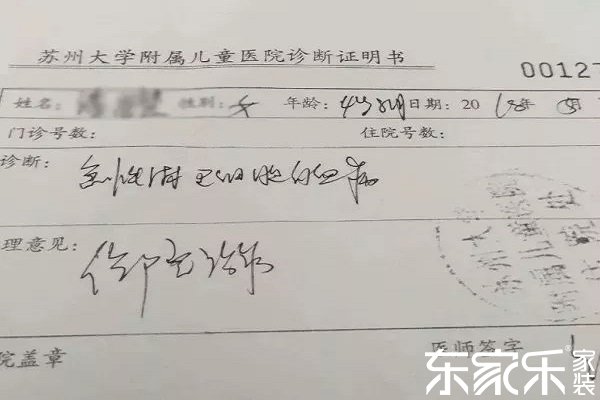 苏州大学附属儿童医院诊断证明书
00127
姓名: 性别: 女 年龄: 4岁 日期: 2018年 月
门诊号数: 住院号数:
诊断: 急性淋巴细胞白血病
理意见: 住院治疗
院盖章 医师签字
东家乐 家装